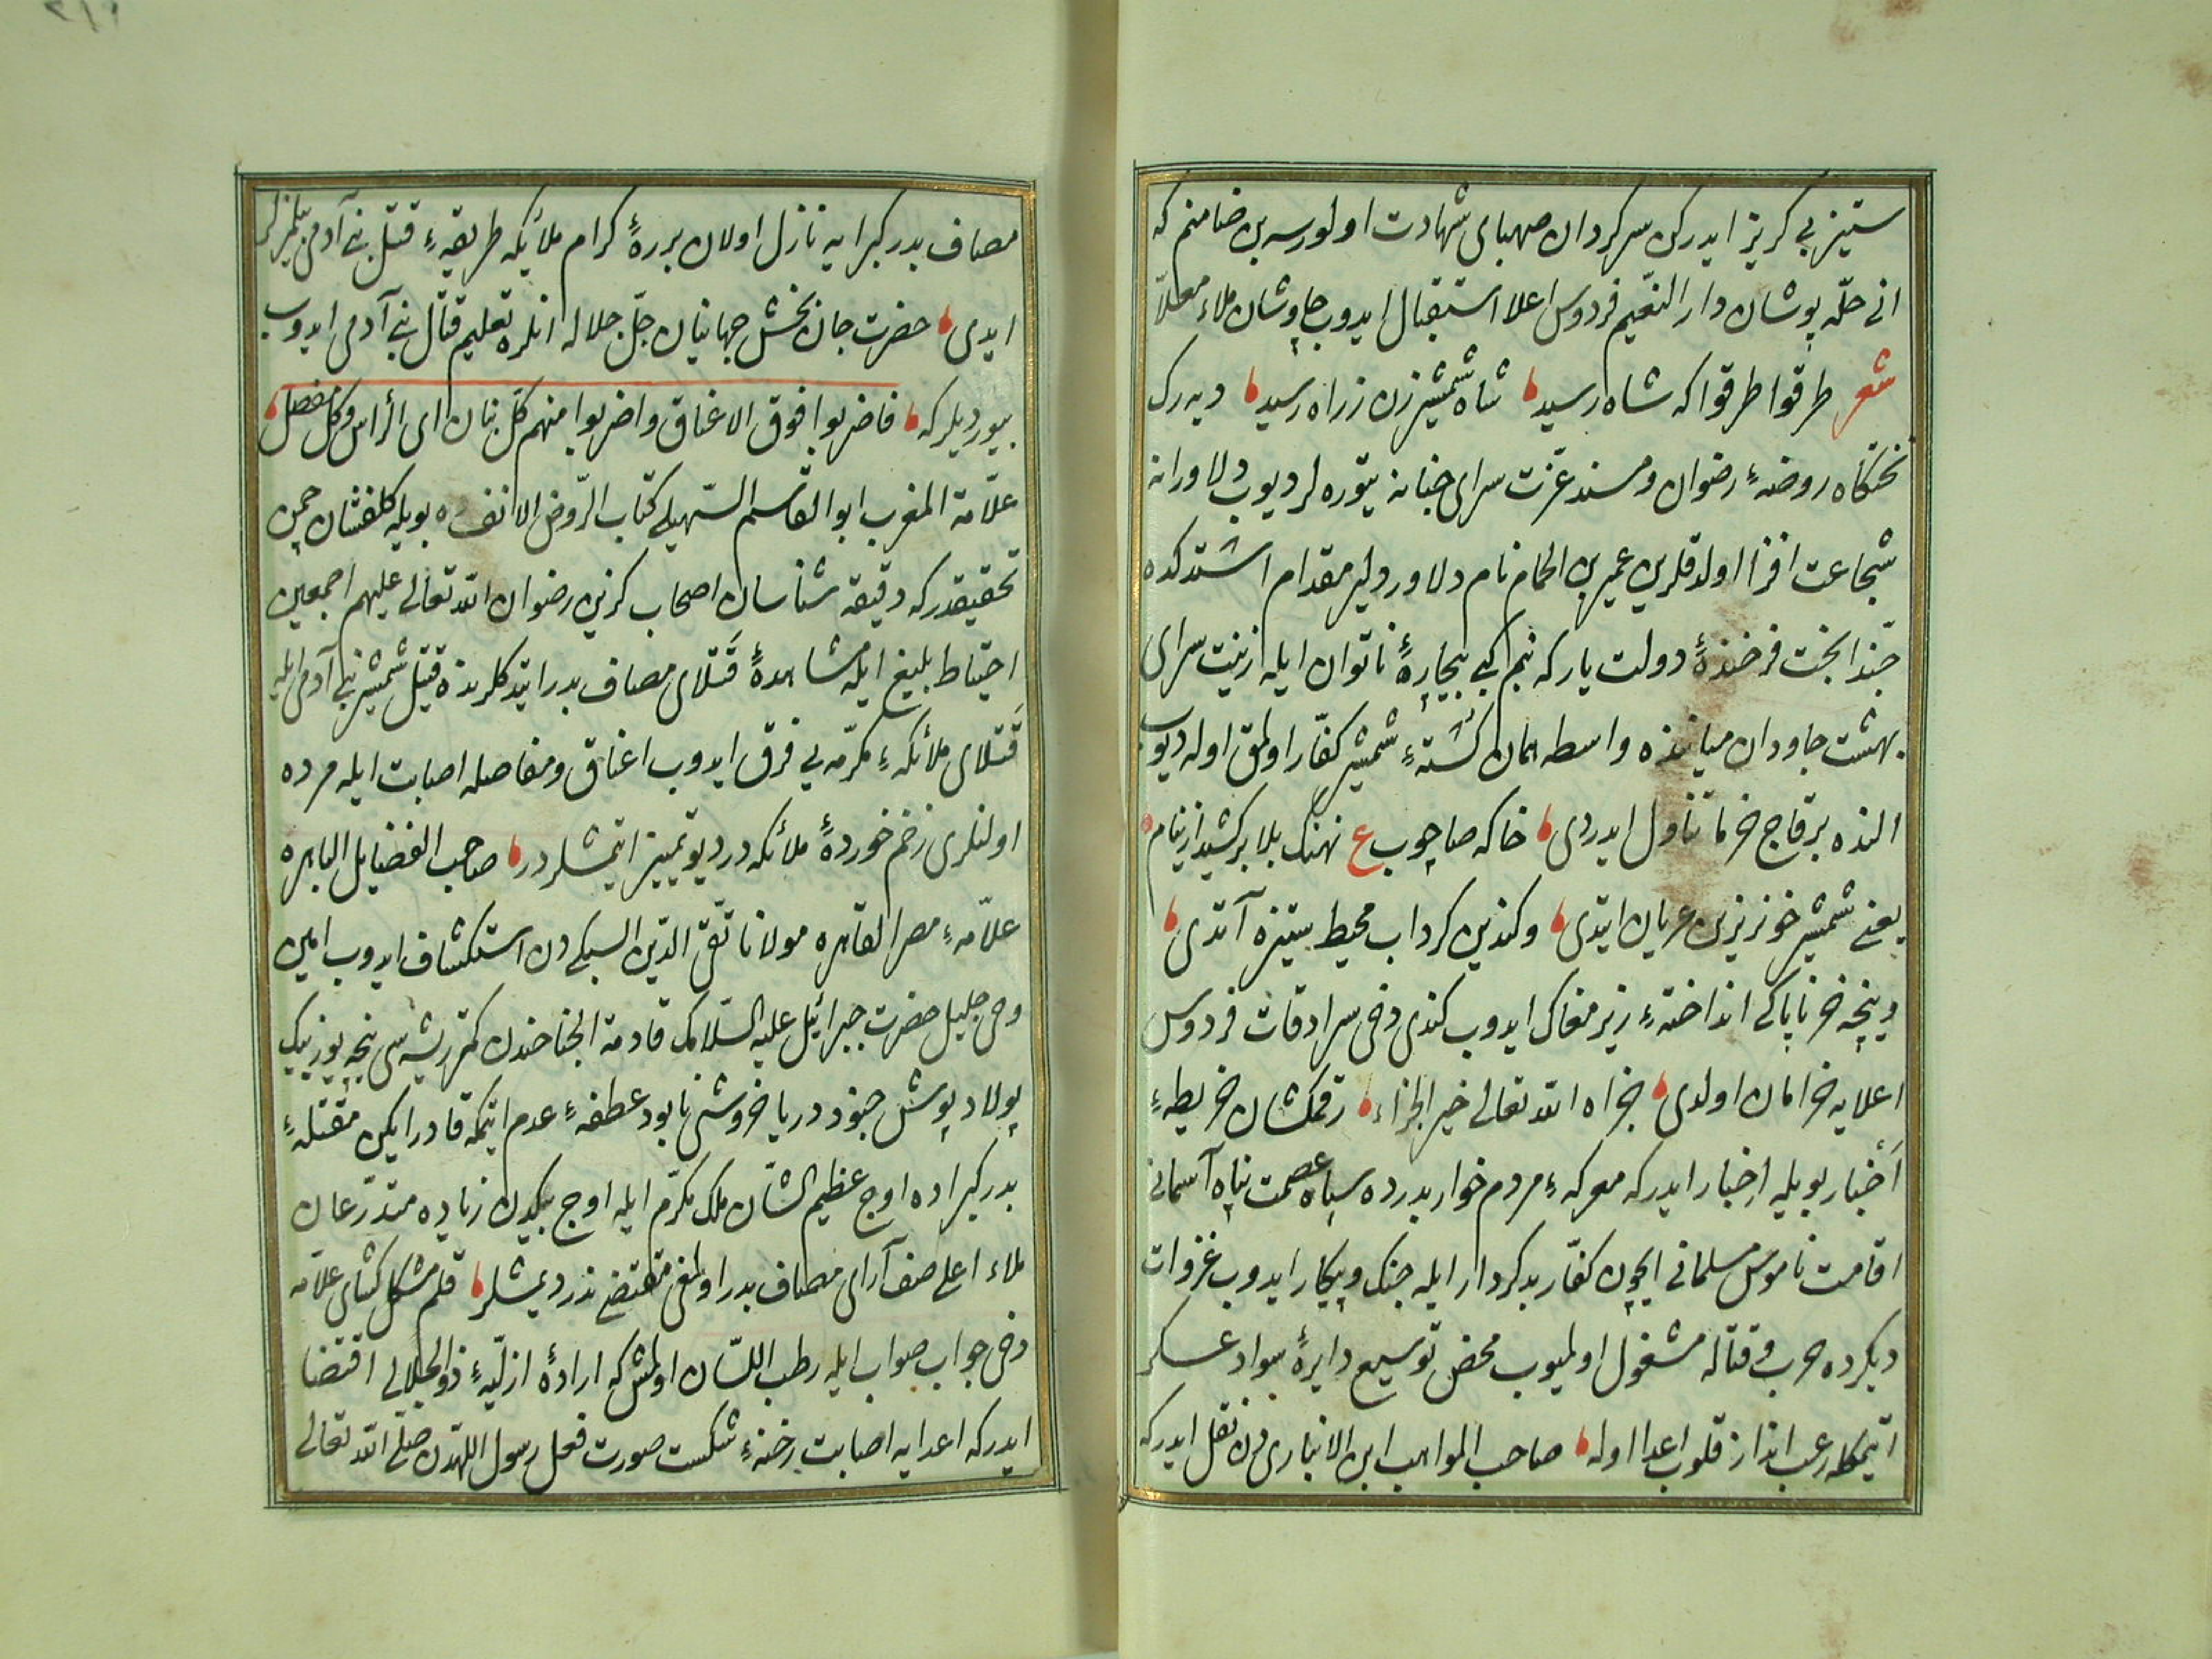 ستیز بی کریز ایدرکن سرکردان صهبای شهادت اولورسه بن ضامنم که
انی حلّه پوشان دار النّعیم فردوس اعلا استقبال ایدوب چاوشان ملاء معلّا
شعر طرقوا طرقوا که شاه رسید شاه شمشیر زن ز راه رسید دیه رک
تختکاه روضهٔ رضوان ومسند عزّت سرای جنانه یتوره لر دیوب دلاورانه
شجاعت افزا اولدقلرین عمیر بن الحمام نام دلاور ودلیر مقدام اشتدکده
حبّذا بخت فرخندهٔ دولت یار که بنم کبی بیچارهٔ ناتوان ایله زینت سرای
بهشت جاودان میاننده واسطه همان کشتهٔ شمشیر کفّار اولمق اوله دیوب
النده برقاج خرما تناول ایدردی خاکه صاچوب ع نهنک بلا برکشید از نیام
یعنی شمشیر خونریزین عریان ایتدی وکندین کرداب محیط ستیزه آتدی
ونیچه خر ناپاکی انداختهٔ زیر مغاک ایدوب کندی دخی سرادقات فردوس
اعلایه خرامان اولدی جزاه الله تعالی خیر الجزاء رقمکشان خریطهٔ
اخبار بویله اخبار ایدر که معرکهٔ مردم خوار بدرده سپاه عصمت پناه آسمانی
اقامت ناموس مسلمانی ایچون کفّار بدکردار ایله جنک وپیکار ایدوب غزوات
دیکرده حرب وقتاله مشغول اولمیوب محض توسیع دایرهٔ سواد عسکر
ایتمکله رعب انداز قلوب اعدا اوله صاحب المواهب ابن الانباری دن نقل ایدر که
مصاف بدر کبرایه نازل اولان بررهٔ کرام ملائکه طریقهٔ قتل بنی آدمی بیلمزلر
ایدی حضرت جان بخش جهانیان جلّ جلاله انلره تعلیم قتال بنی آدمی ایدوب
بیوردیلر که فاضربوا فوق الاعناق واضربوا منهم کلّ بنان ای الرأس وکل مفصل
علّامة المغرب ابو القاسم السّهیلی کتاب الرّوض الانف ده بویله کلفشان چمن
تحقیقدر که دقیقه شناسان اصحاب کزین رضوان الله تعالی علیهم اجمعین
احتیاط بلیغ ایله مشاهدهٔ قتلای مصاف بدر ایتدکلرنده قتیل شمشیر بنی آدمی ایله
قتلای ملائکهٔ مکرّمه یی فرق ایدوب اعناق ومفاصله اصابت ایله مرده
اولنلری زخم خوردهٔ ملائکه در دیو تمییز ایتمشلردر صاحب الفضایل الباهره
علّامهٔ مصر القاهره مولانا تقیّ الدّین السبکی دن استکشاف ایدوب امین
وحی جلیل حضرت جبرائیل علیه السّلامک قادمة الجناحندن کمتر ریشه سی نیچه یوز بیک
پولاد پوش جنود دریا خروشی نابود عطفهٔ عدم ایتمکه قادر ایکن مقتلهٔ
بدر کبراده اوج عظیم الشّان ملک مکرّم ایله اوچ بیکدن زیاده متدرّعان
ملاء اعلی صف آرای مصاف بدر اولمغی مقتضی ندر دیمشلر قلم مشکل کشای علّامه
دخی جواب صواب ایله رطب اللسّان اولمش که ارادهٔ ازلیّهٔ ذو الجلالی اقتضا
ایدر که اعدایه اصابت رخنهٔ شکست صورت فعل رسول اللّهدن صلّی الله تعالی